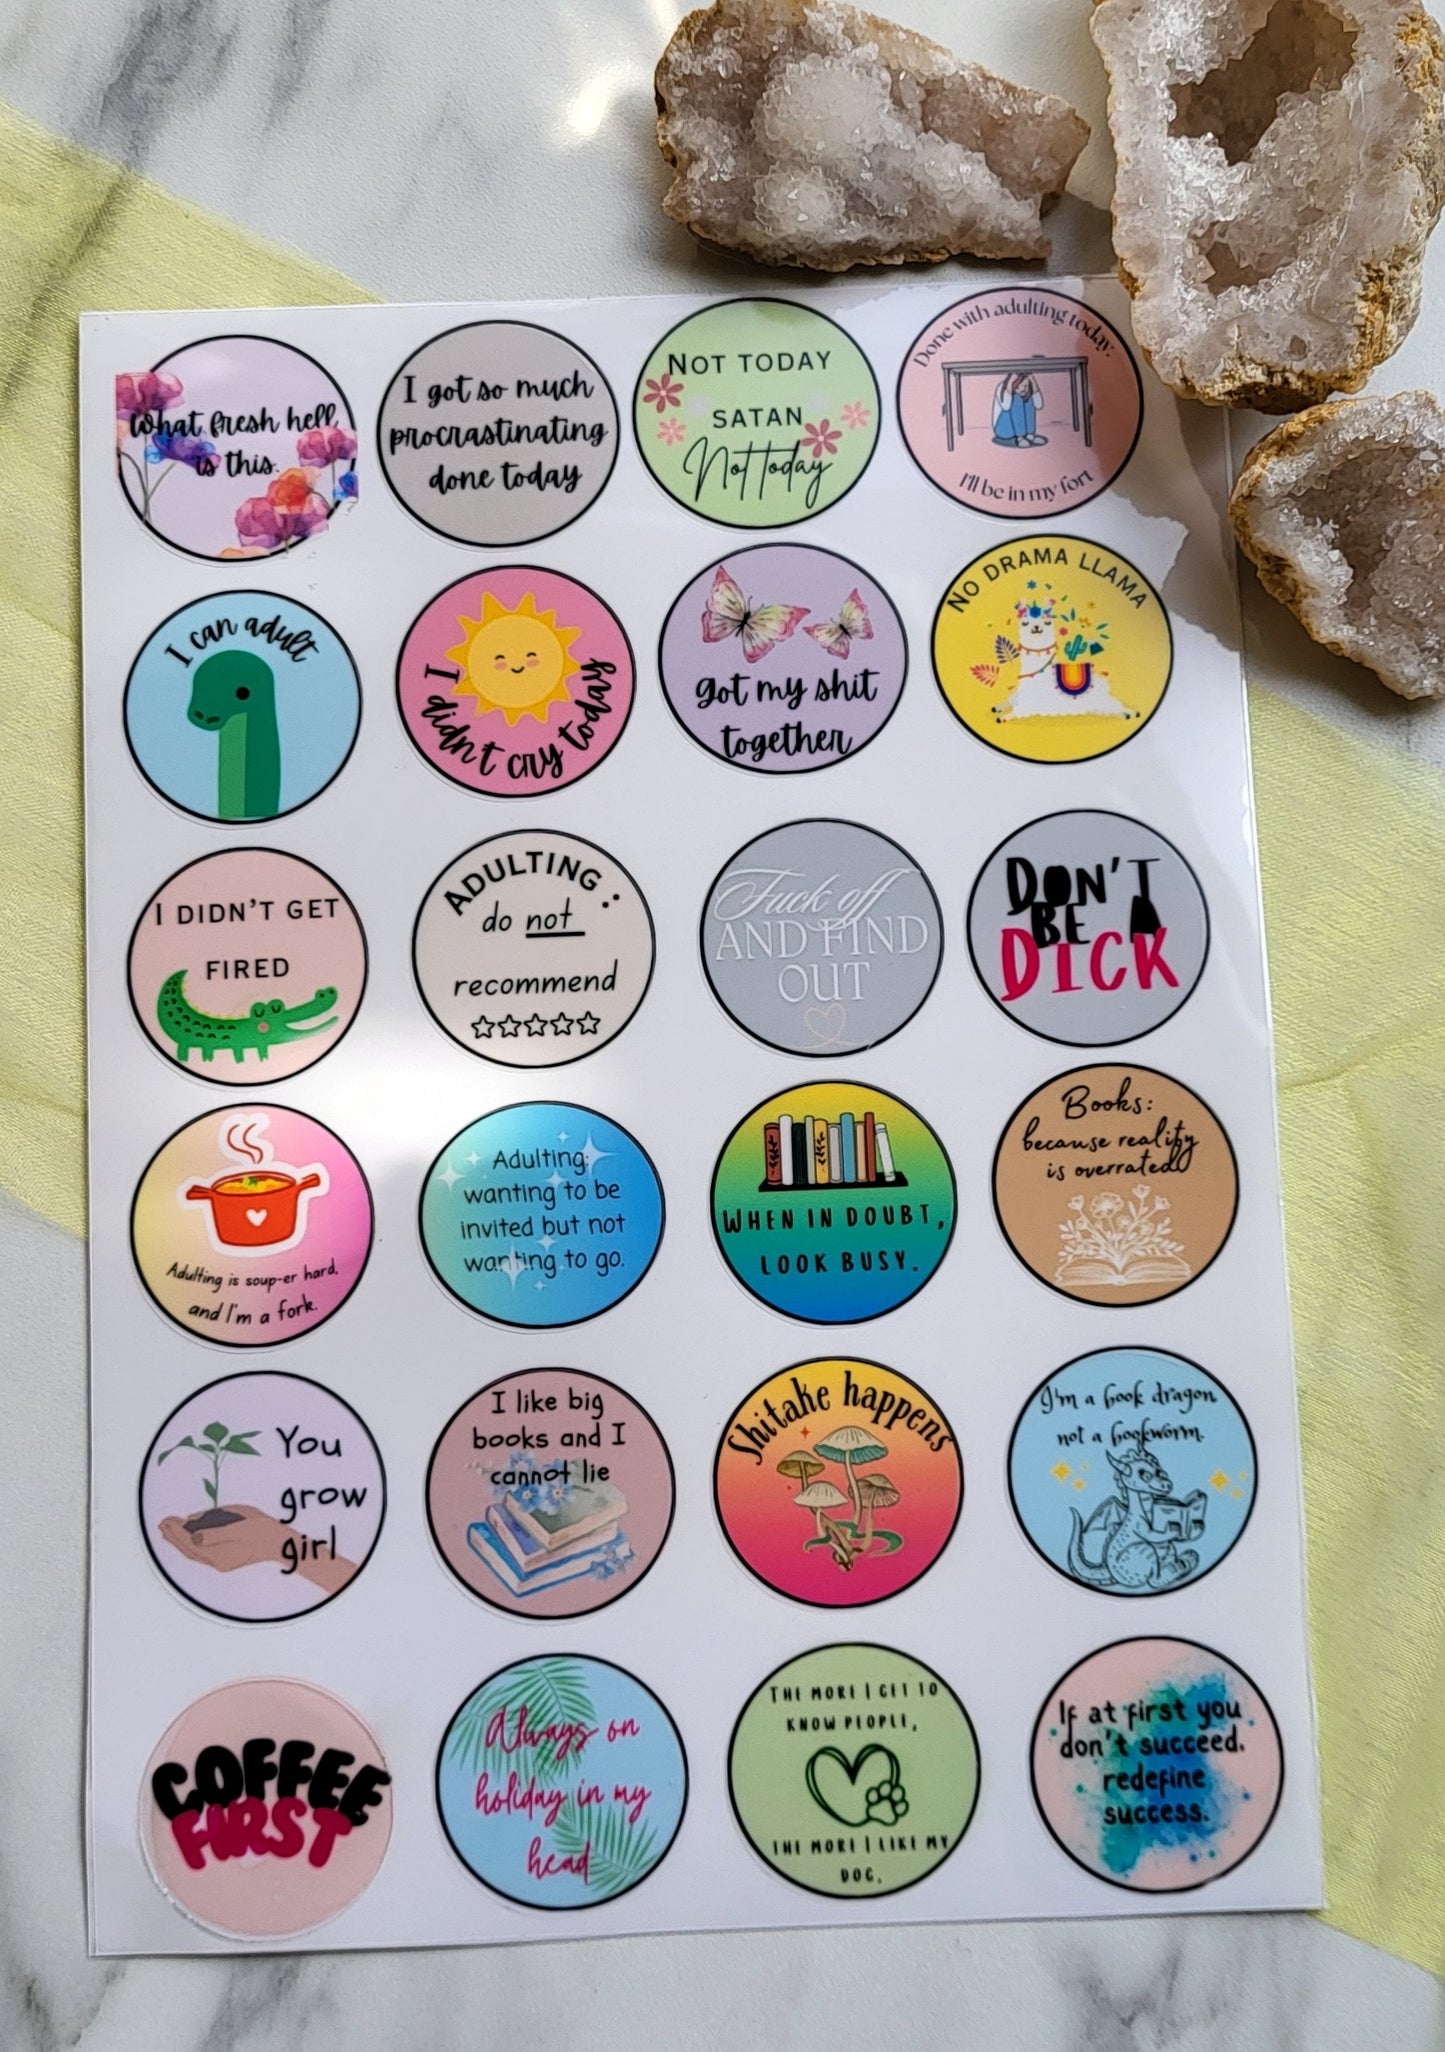 What fresh hell
is this.
I got so much
procrastinating
done today
NOT TODAY
SATAN
Not today
Done with adulting today.
I'll be in my fort
I can adult
I didn't cry today
got my shit
together
NO DRAMA LLAMA
I DIDN'T GET
FIRED
ADULTING:
do not
recommend
Fuck off
AND FIND
OUT
DON'T
BE A
DICK
Adulting is soup-er hard,
and I'm a fork.
Adulting:
wanting to be
invited but not
wanting to go.
WHEN IN DOUBT,
LOOK BUSY.
Books:
because reality
is overrated
You
grow
girl
I like big
books and I
cannot lie
Shitake happens
I'm a book dragon
not a bookworm.
COFFEE
FIRST
Always on
holiday in my
head
THE MORE I GET TO
KNOW PEOPLE,
THE MORE I LIKE MY
DOG.
If at first you
don't succeed.
redefine
success.